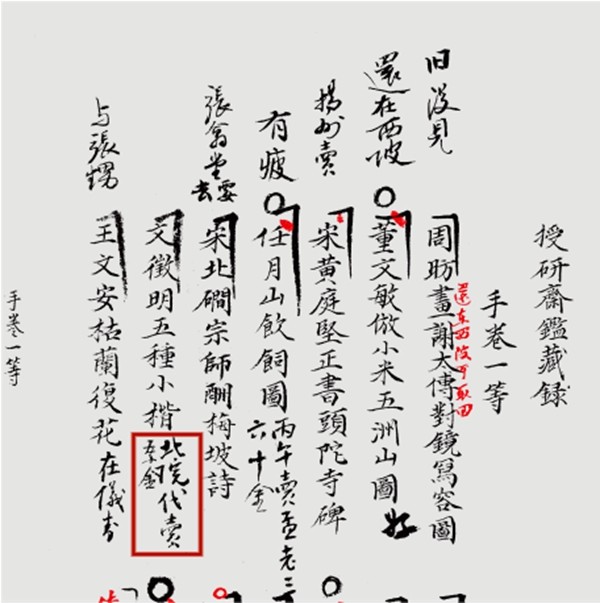 授研齋鑑藏録
手卷一等
旧没見
周昉畫謝太傅對鏡寫容圖
還在西陂可取回
還在西陂
董文敏倣小米五洲山圖 好
揚州賣
宋黃庭堅正書頭陀寺碑
有疲
任月山飲飼圖 丙午賣
六十金
張翁堂要
去
宋北磵宗師酬梅坡詩
文徵明五種小楷 北院代賣
与張甥
王文安枯蘭復花 在儀
手卷一等